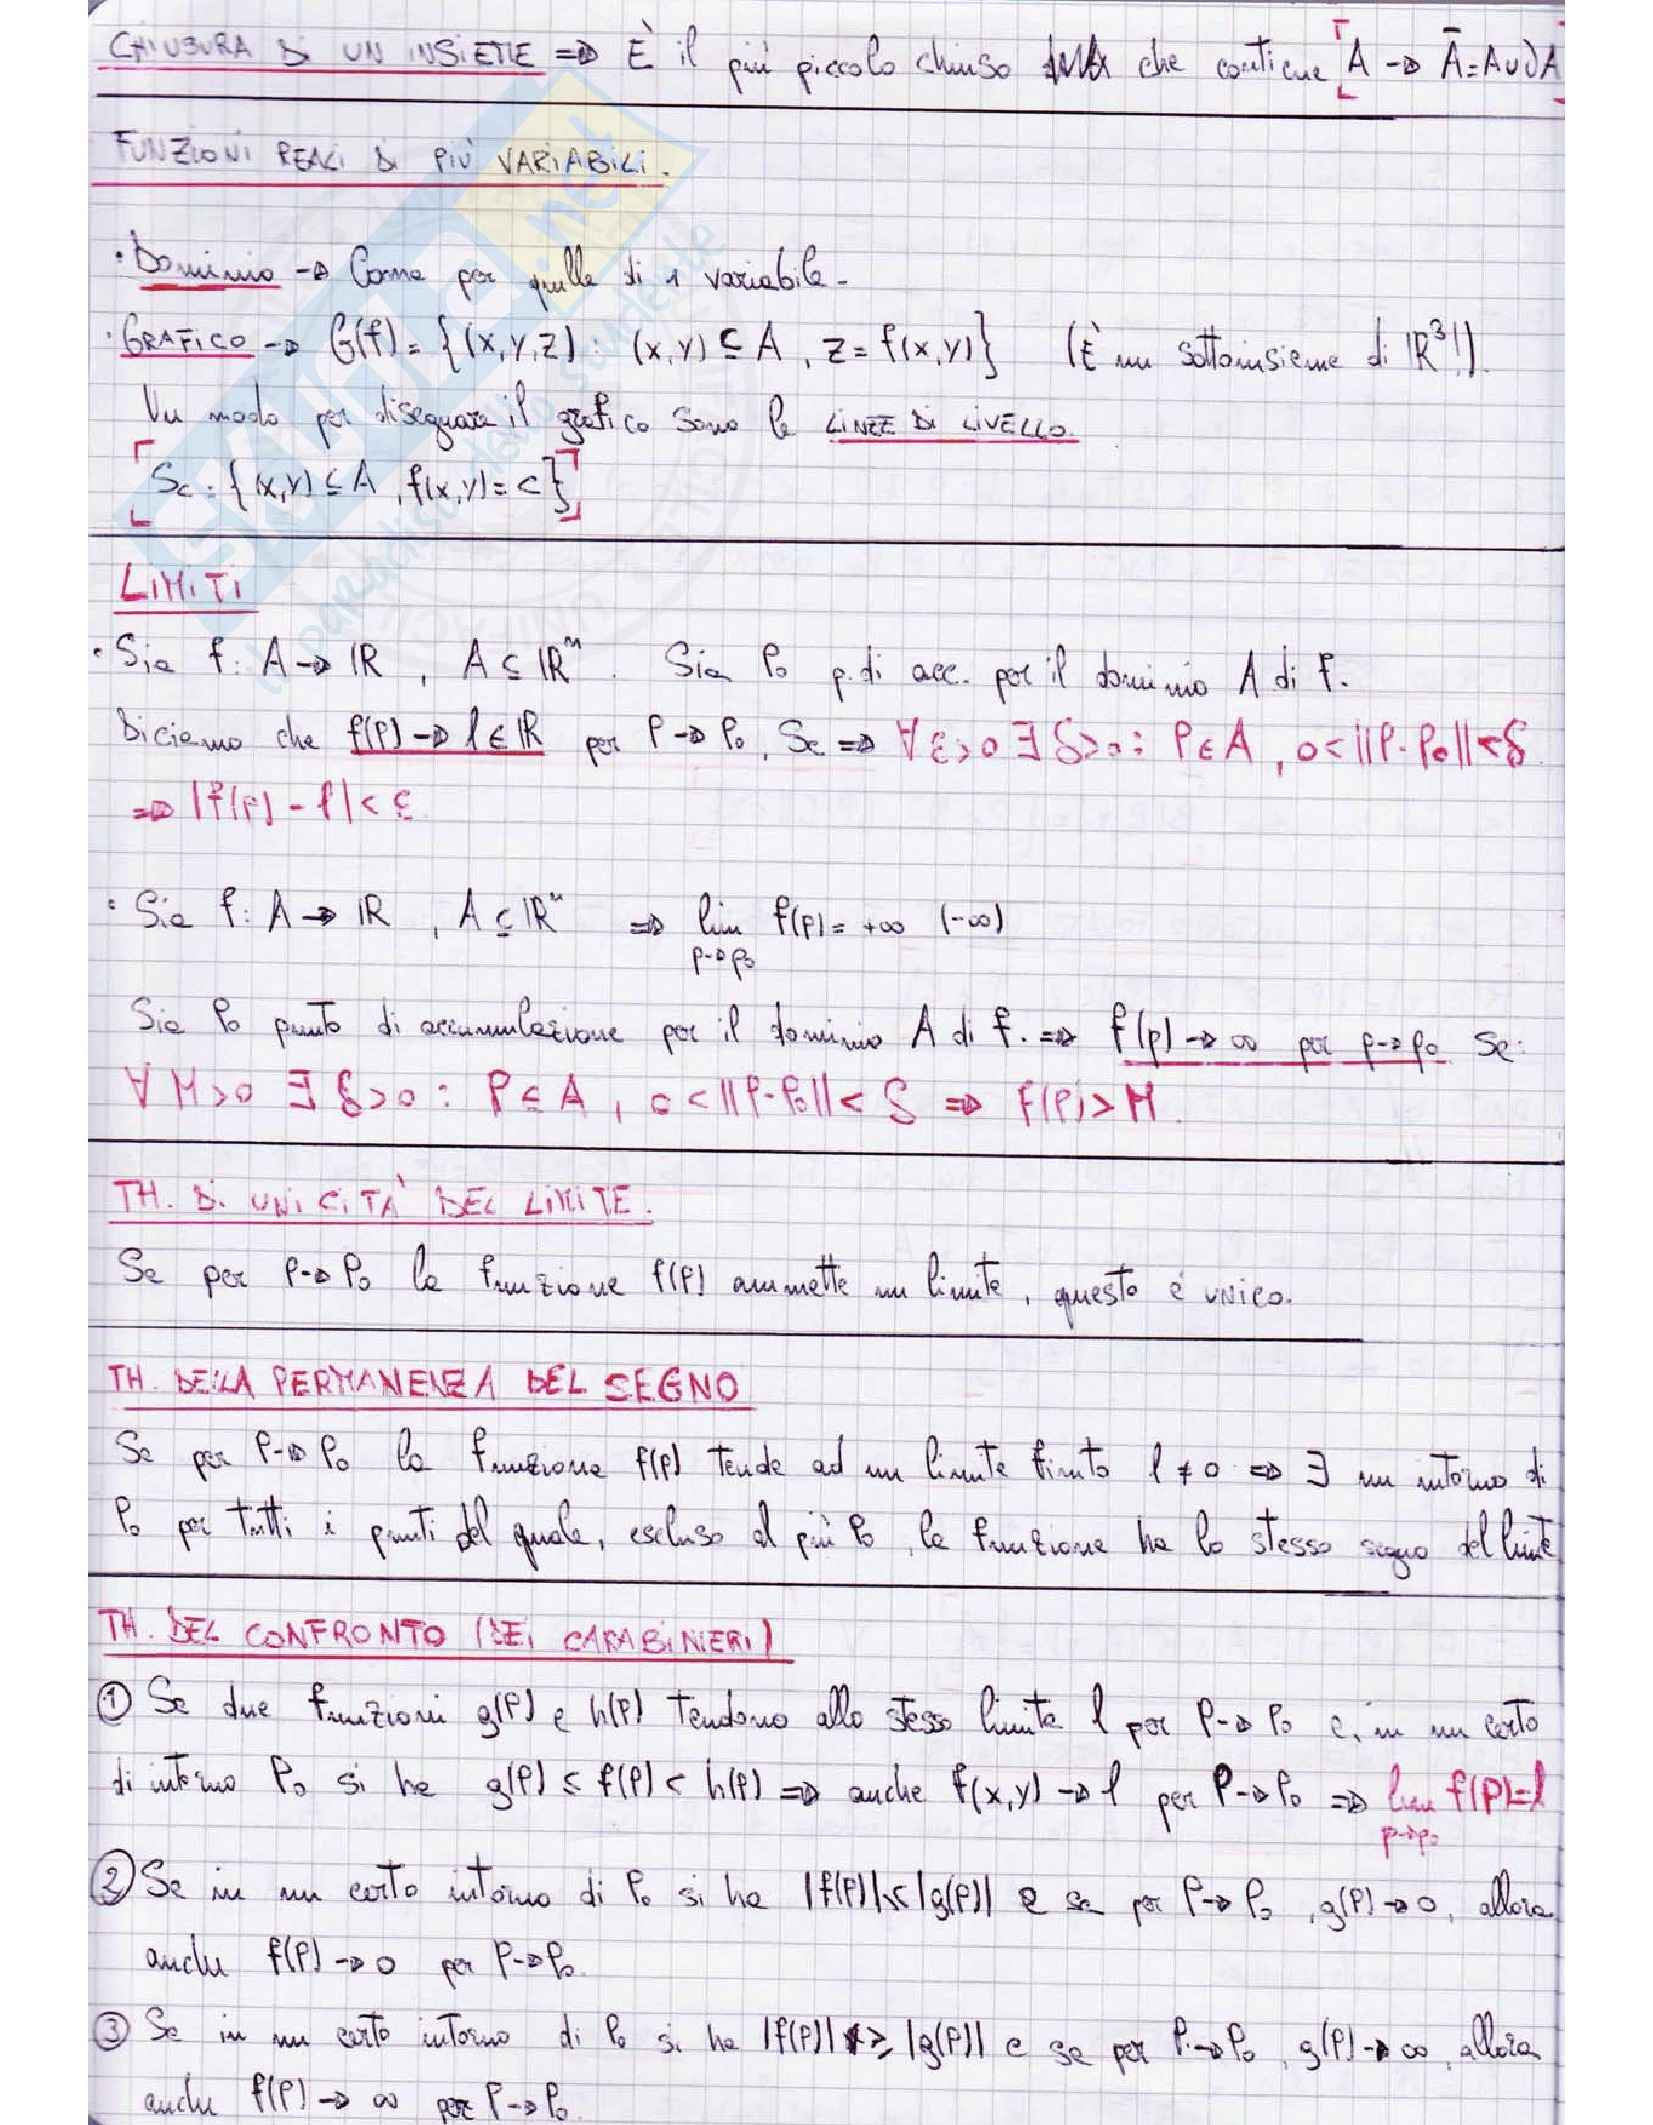 CHIUSURA DI UN INSIEME => È il più piccolo chiuso che contiene A -> Ā = A∪∂A
FUNZIONI REALI DI PIÙ VARIABILI.
· Dominio -> Come per quelle di 1 variabile.
· GRAFICO -> G(f) = {(x,y,z) : (x,y) ⊆ A , z = f(x,y)} (È un sottoinsieme di ℝ³!).
Un modo per disegnare il grafico sono le LINEE DI LIVELLO.
Sc = {(x,y) ⊆ A , f(x,y) = c}
LIMITI
· Sia f: A -> ℝ , A ⊆ ℝⁿ. Sia P₀ p. di acc. per il dominio A di f.
Diciamo che f(P) -> l ∈ ℝ per P -> P₀, Se => ∀ε>0 ∃δ>0 : P∈A , 0<||P-P₀||<δ
=> |f(P) - l| < ε
· Sia f: A -> ℝ , A ⊆ ℝⁿ => lim f(P) = +∞ (-∞)
P->P₀
Sia P₀ punto di accumulazione per il dominio A di f. => f(p) -> ∞ per p->p₀ Se:
∀M>0 ∃δ>0 : P ⊆ A , 0<||P-P₀||<δ => f(P)>M.
TH. DI UNICITA' DEL LIMITE.
Se per P->P₀ la funzione f(P) ammette un limite, questo è unico.
TH. DELLA PERMANENZA DEL SEGNO
Se per P->P₀ la funzione f(P) tende ad un limite finito l ≠ 0 => ∃ un intorno di
P₀ per tutti i punti del quale, escluso al più P₀, la funzione ha lo stesso segno del limite
TH. DEL CONFRONTO (DEI CARABINIERI)
① Se due funzioni g(P) e h(P) tendono allo stesso limite l per P->P₀ e, in un certo
di intorno P₀ si ha g(P) ≤ f(P) < h(P) => anche f(x,y) -> l per P->P₀ => lim f(P)=l
P->P₀
② Se in un certo intorno di P₀ si ha |f(P)| ≤ |g(P)| e se per P->P₀, g(P)->0, allora
anche f(P) -> 0 per P->P₀.
③ Se in un certo intorno di P₀ si ha |f(P)| ≥ |g(P)| e se per P->P₀, g(P)->∞, allora
anche f(P) -> ∞ per P->P₀.